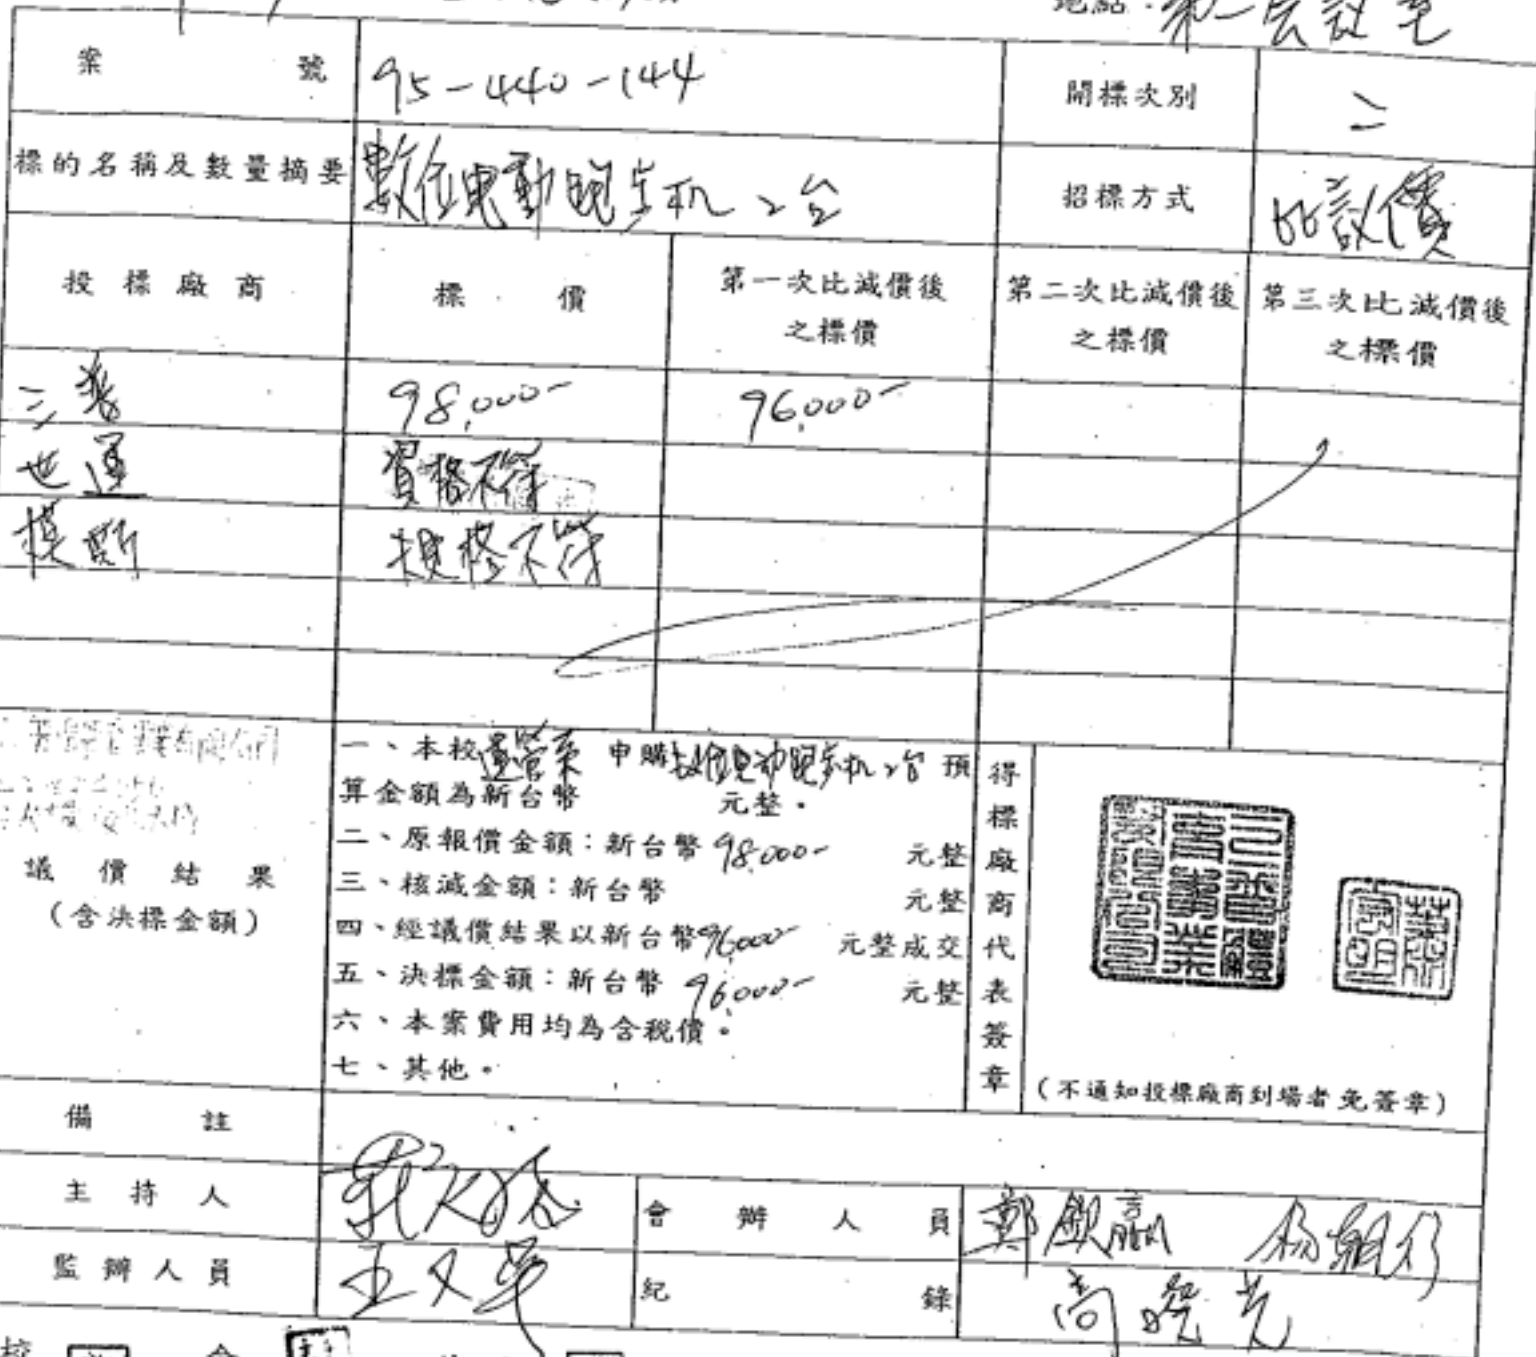 地點：第一會議室
案號 95-440-144 開標次別 二
標的名稱及數量摘要 數位電動跑步机 2台 招標方式 比議價
投標廠商 標價 第一次比減價後之標價 第二次比減價後之標價 第三次比減價後之標價
三普 98,000- 96,000-
世運 資格不符
模斯 規格不符
議價結果
（含決標金額）
一、本校運管系 申購數位電动跑步机2台 預
算金額為新台幣 元整。
二、原報價金額：新台幣 98,000- 元整
三、核減金額：新台幣 元整
四、經議價結果以新台幣96,000- 元整成交
五、決標金額：新台幣 96,000- 元整
六、本案費用均為含稅價。
七、其他。
得標廠商代表簽章
（不通知投標廠商到場者免簽章）
備註
主持人 會辦人員 鄭欽
監辦人員 王又 紀錄 尚曉光